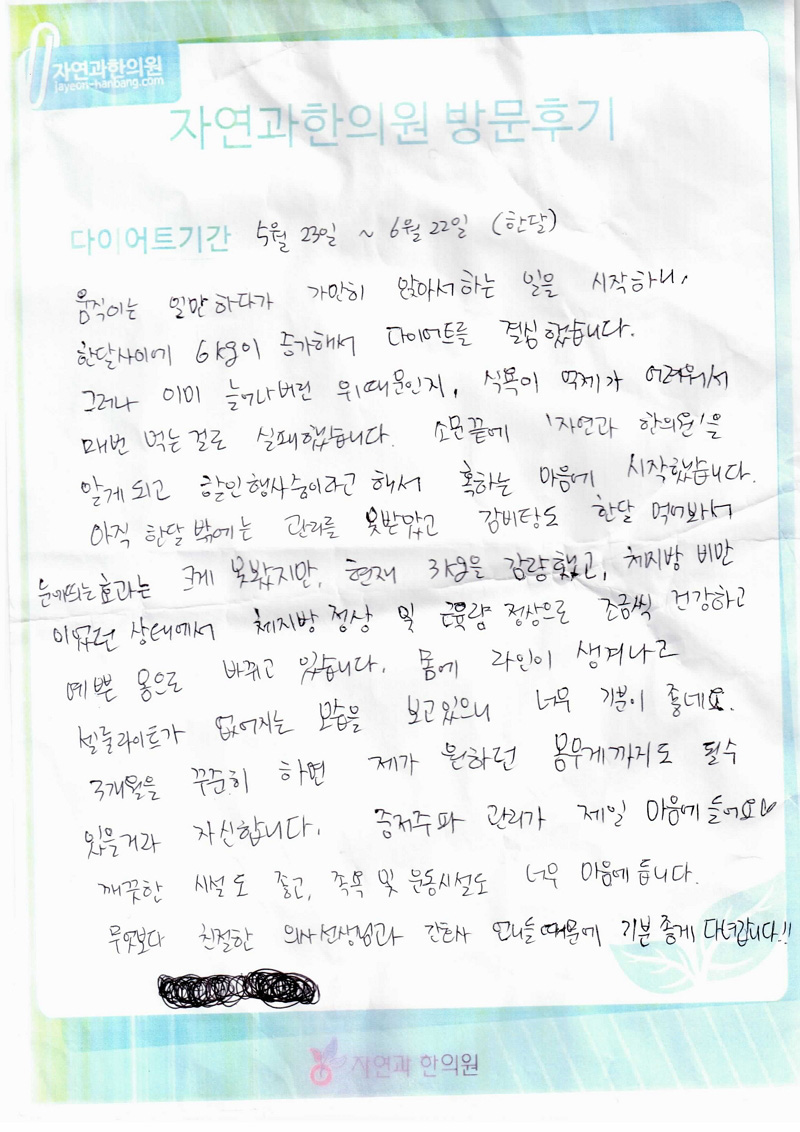 자연과한의원
jayeon-hanbang.com
자연과한의원 방문후기
다이어트기간 5월 23일 ~ 6월 22일 (한달)
움직이는 일만하다가 가만히 앉아서하는 일을 시작하니,
한달사이에 6kg이 증가해서 다이어트를 결심했습니다.
그러나 이미 늘어나버린 위때문인지, 식욕이 억제가 어려워서
매번 먹는걸로 실패했습니다. 소문끝에 '자연과 한의원'을
알게되고 할인행사중이라고 해서 혹하는 마음에 시작했습니다.
아직 한달밖에는 관리를 못받았고 감비탕도 한달 먹어봐서
눈에띄는효과는 크게 못봤지만, 현재 3kg을 감량했고, 체지방 비만
이었던 상태에서 체지방정상 및 근육량 정상으로 조금씩 건강하고
예쁜 몸으로 바뀌고 있습니다. 몸에 라인이 생겨나고
셀룰라이트가 없어지는 모습을 보고있으니 너무 기분이 좋네요.
3개월을 꾸준히 하면 제가 원하던 몸무게까지도 될수
있을거라 자신합니다. 중저주파 관리가 제일 마음에들어요♡
깨끗한 시설도 좋고, 족욕 및 운동시설도 너무 마음에듭니다.
무엇보다 친절한 의사선생님과 간호사 언니들때문에 기분좋게 다녀갑니다!!
자연과 한의원